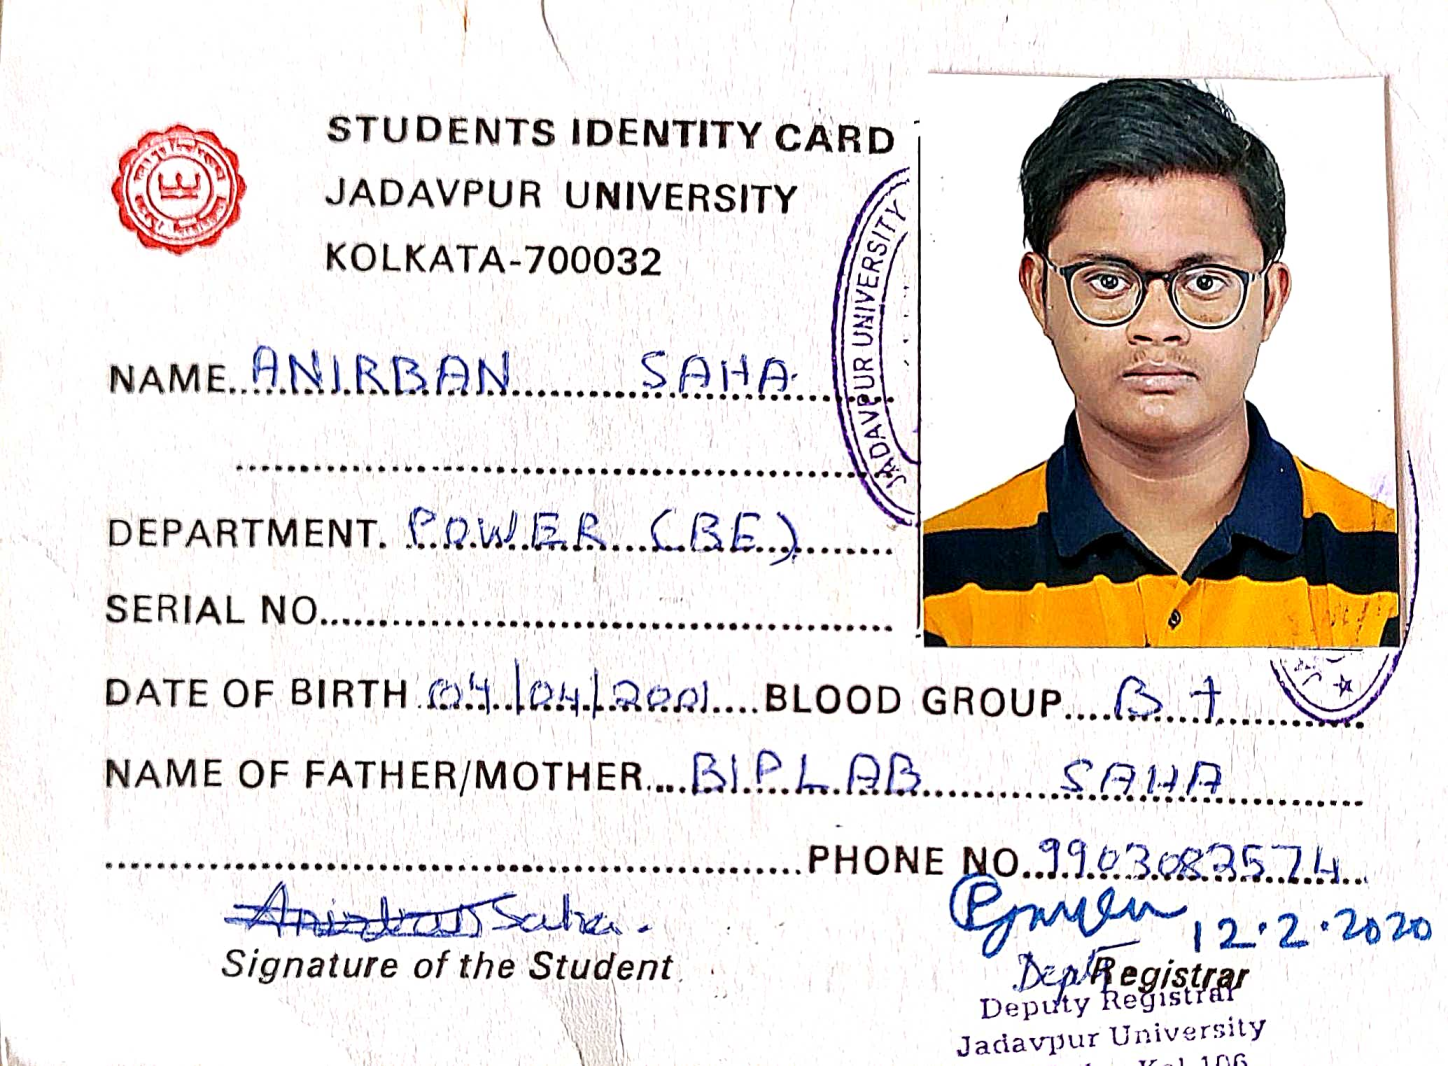 STUDENTS IDENTITY CARD
JADAVPUR UNIVERSITY
KOLKATA-700032
JADAVPUR UNIVERSITY
NAME ANIRBAN SAHA
DEPARTMENT. POWER (BE)
SERIAL NO
DATE OF BIRTH 04/04/2001 BLOOD GROUP B+
NAME OF FATHER/MOTHER BIPLAB SAHA
PHONE NO. 9903082574
Anirban Saha.
12.2.2020
Signature of the Student
Registrar
Deputy Registrar
Jadavpur University